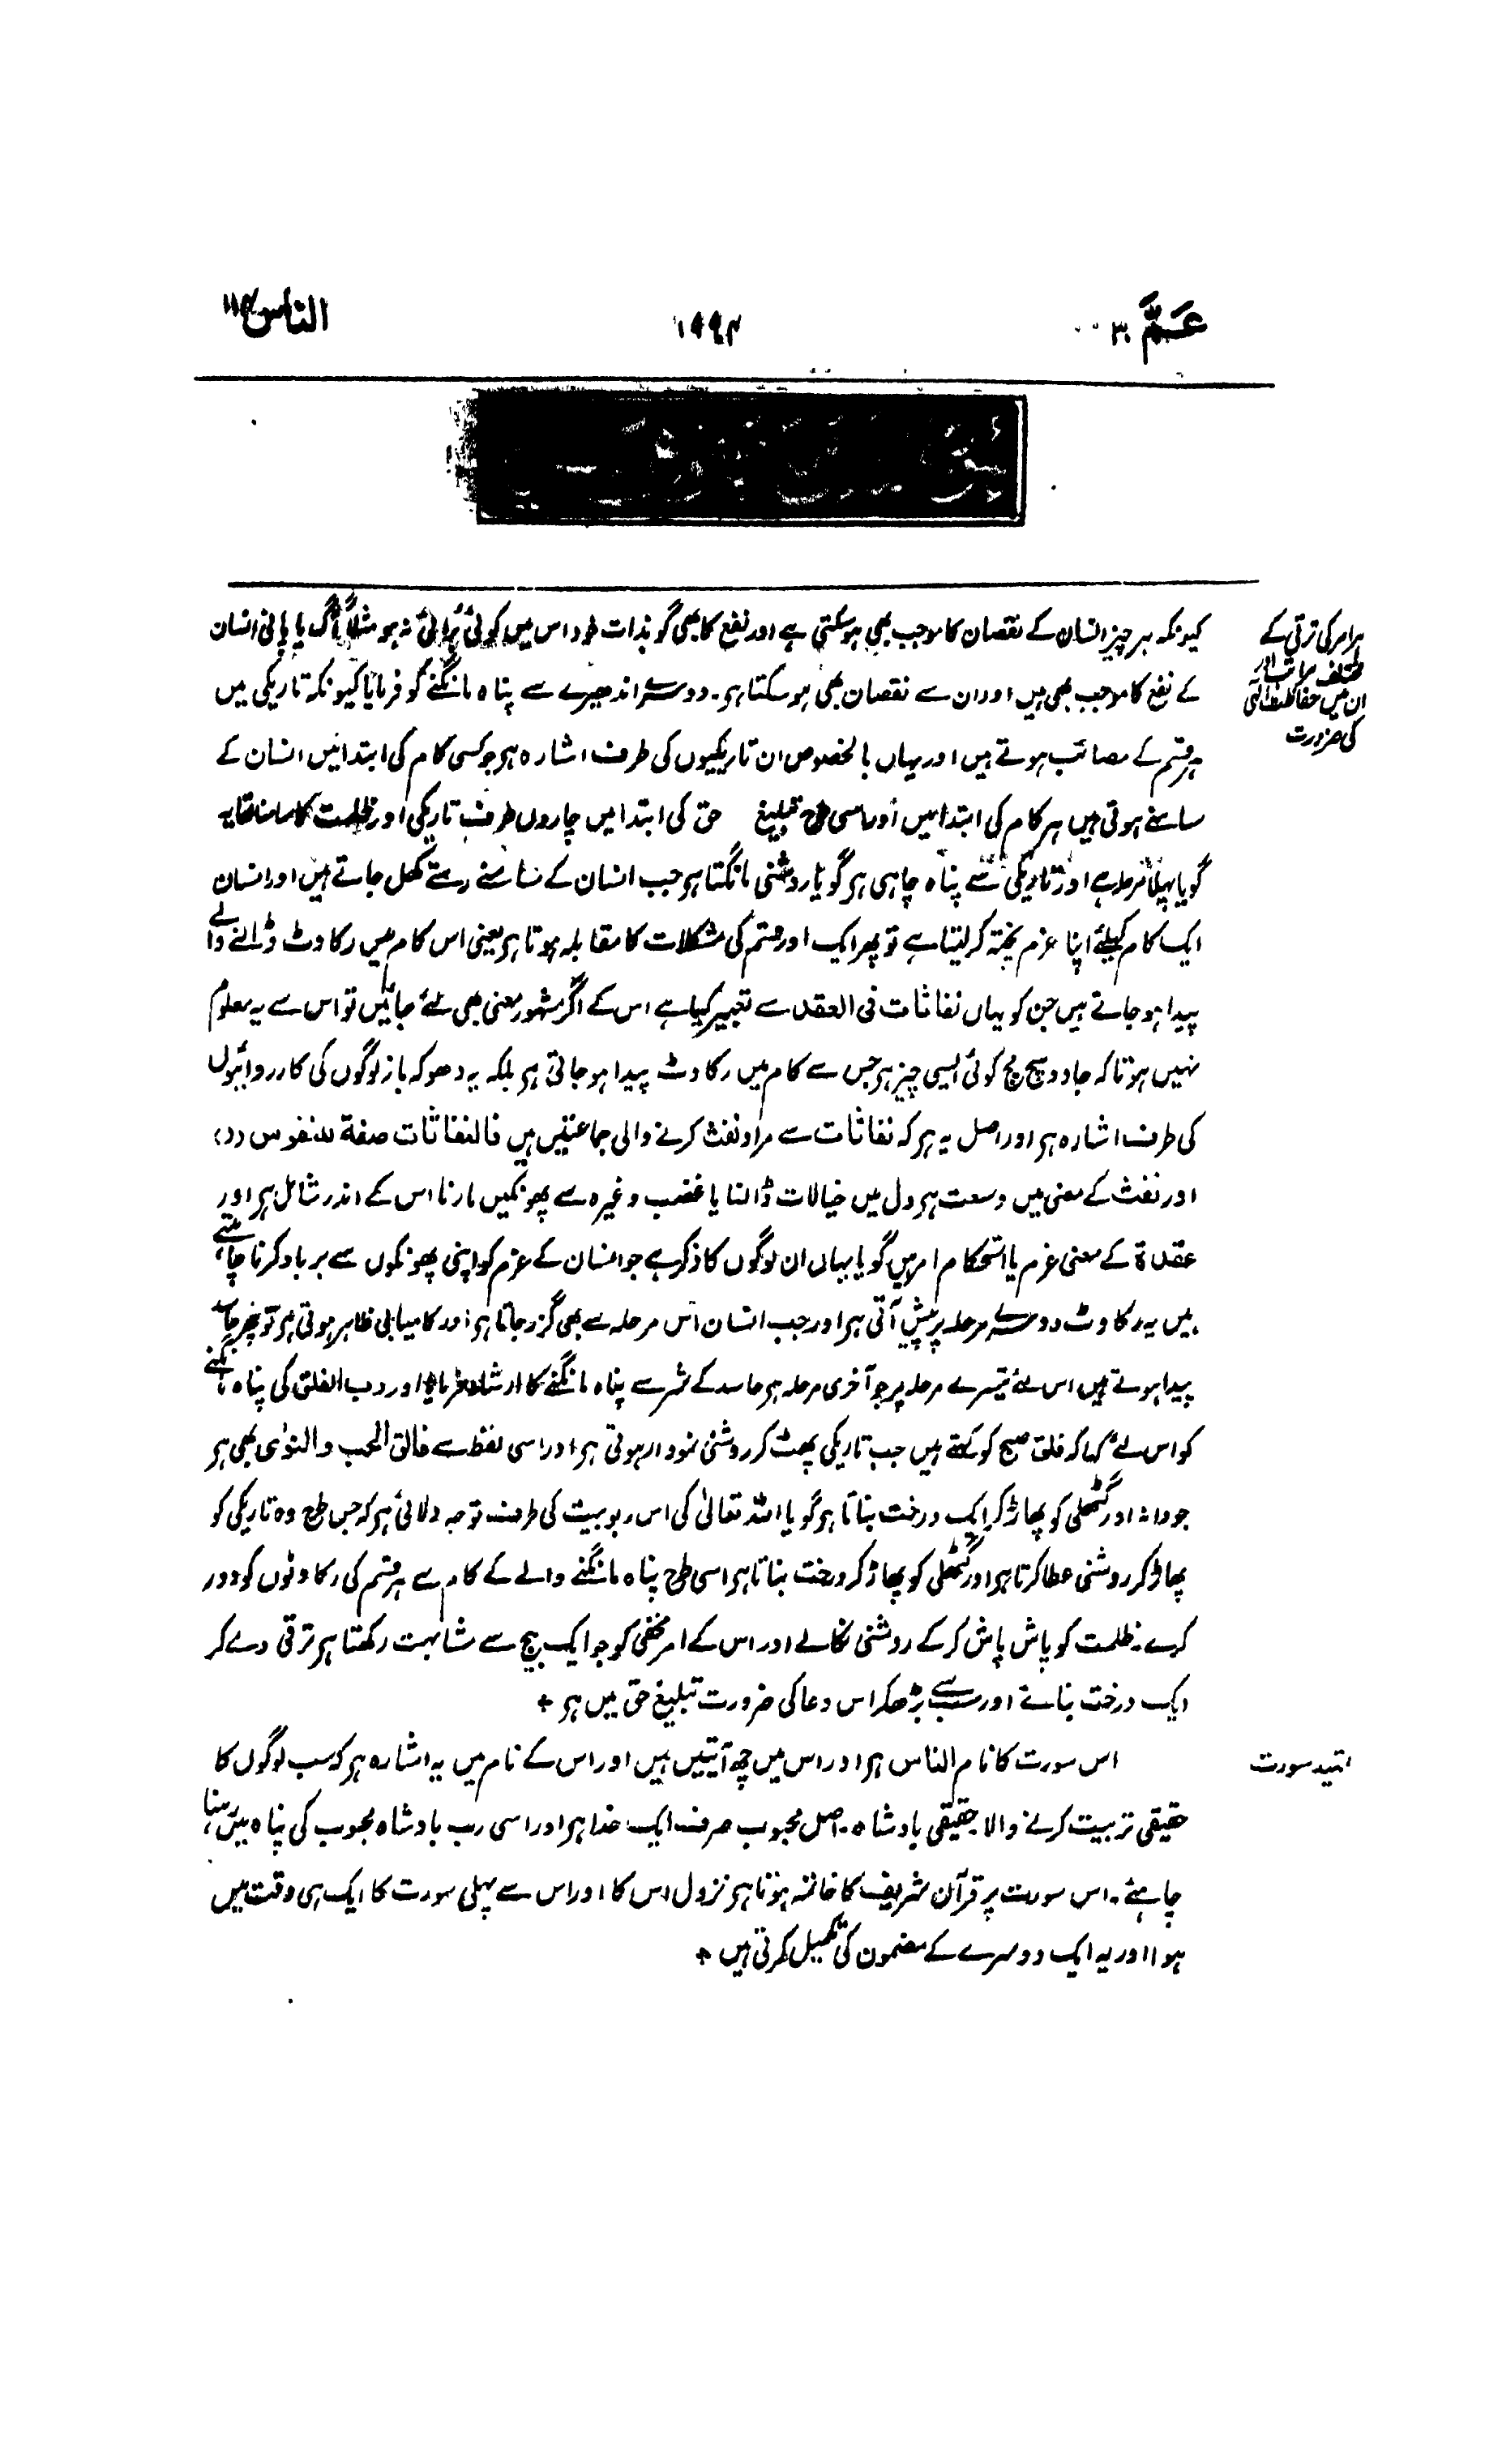 عَمَّ ٣٠
١٩٩٤
الناس ١١٤
ہر امر کی ترقی کے
مختلف مراتب اور
ان میں حفاظت الٰہی
کی ضرورت
کیونکہ ہر چیز انسان کے نقصان کا موجب بھی ہو سکتی ہے اور نفع کا بھی گو بذات خود اس میں کوئی بُرائی نہ ہو مثلاً آگ یا پانی انسان
کے نفع کا موجب بھی ہیں اور ان سے نقصان بھی ہو سکتا ہر۔ دوسرے اندھیرے سے پناہ مانگنے کو فرمایا کیونکہ تاریکی میں
ہر قسم کے مصائب ہوتے ہیں اور یہاں بالخصوص ان تاریکیوں کی طرف اشارہ ہر جو کسی کام کی ابتدا میں انسان کے
سامنے ہوتی ہیں ہر کام کی ابتدا میں اور اسی طرح تبلیغ حق کی ابتدا میں چاروں طرف تاریکی اور ظلمت کا سامنا تھا یہ
گویا پہلا مرحلہ ہے اور تاریکی سے پناہ چاہی ہر گویا روشنی مانگتا ہر جب انسان کے سامنے رستے کھل جاتے ہیں اور انسان
ایک کام کیلئے اپنا عزم پختہ کر لیتا ہے تو پھر ایک اور قسم کی مشکلات کا مقابلہ ہوتا ہر یعنی اس کام میں رکاوٹ ڈالنے والے
پیدا ہو جاتے ہیں جن کو یہاں نفاثات فی العقد سے تعبیر کیا ہے اس کے اگر مشہور معنی بھی لئے جائیں تو اس سے یہ معلوم
نہیں ہوتا کہ جادو سچ مچ کوئی ایسی چیز ہر جس سے کام میں رکاوٹ پیدا ہو جاتی ہر بلکہ یہ دھوکہ باز لوگوں کی کارروائیوں
کی طرف اشارہ ہر اور اصل یہ ہر کہ نفاثات سے مراد نفث کرنے والی جماعتیں ہیں فالنفاثات صفة للنفوس (ر)
اور نفث کے معنی میں وسعت ہر دل میں خیالات ڈالنا یا غضب وغیرہ سے پھونکیں مارنا اس کے اندر شامل ہر اور
عقدة کے معنی عزم یا استحکام امر ہیں گویا یہاں ان لوگوں کا ذکر ہے جو انسان کے عزم کو اپنی پھونکوں سے برباد کرنا چاہتے
ہیں یہ رکاوٹ دوسرے مرحلہ پر پیش آتی ہر اور جب انسان اس مرحلہ سے بھی گزر جاتا ہر اور کامیابی ظاہر ہوتی ہر تو پھر حاسد
پیدا ہوتے ہیں اس لئے تیسرے مرحلہ پر جو آخری مرحلہ ہر حاسد کے شر سے پناہ مانگنے کا ارشاد فرمایا اور رب الفلق کی پناہ مانگنے
کو اس لئے کہا کہ فلق صبح کو کہتے ہیں جب تاریکی پھٹ کر روشنی نمودار ہوتی ہر اور اسی لفظ سے فالق الحب والنوٰی بھی ہر
جو دانہ اور گٹھلی کو پھاڑ کر ایک درخت بناتا ہر گویا اللہ تعالیٰ کی اس ربوبیت کی طرف توجہ دلائی ہر کہ جس طرح وہ تاریکی کو
پھاڑ کر روشنی عطا کرتا ہر اور گٹھلی کو پھاڑ کر درخت بناتا ہر اسی طرح پناہ مانگنے والے کے کام سے ہر قسم کی رکاوٹوں کو دور
کرے۔ ظلمت کو پاش پاش کر کے روشنی نکالے اور اس کے امر مخفی کو جو ایک بیج سے مشابہت رکھتا ہر ترقی دے کر
ایک درخت بنائے اور سب سے بڑھکر اس دعا کی ضرورت تبلیغ حق میں ہر +
تمہید سورت
اس سورت کا نام الناس ہر اور اس میں چھ آیتیں ہیں اور اس کے نام میں یہ اشارہ ہر کہ سب لوگوں کا
حقیقی تربیت کرنے والا حقیقی بادشاہ۔ اصل محبوب صرف ایک خدا ہر اور اسی رب بادشاہ محبوب کی پناہ میں رہنا
چاہئے۔ اس سورت پر قرآن شریف کا خاتمہ ہوتا ہر نزول اس کا اور اس سے پہلی سورت کا ایک ہی وقت میں
ہوا اور یہ ایک دوسرے کے مضمون کی تکمیل کرتی ہیں +